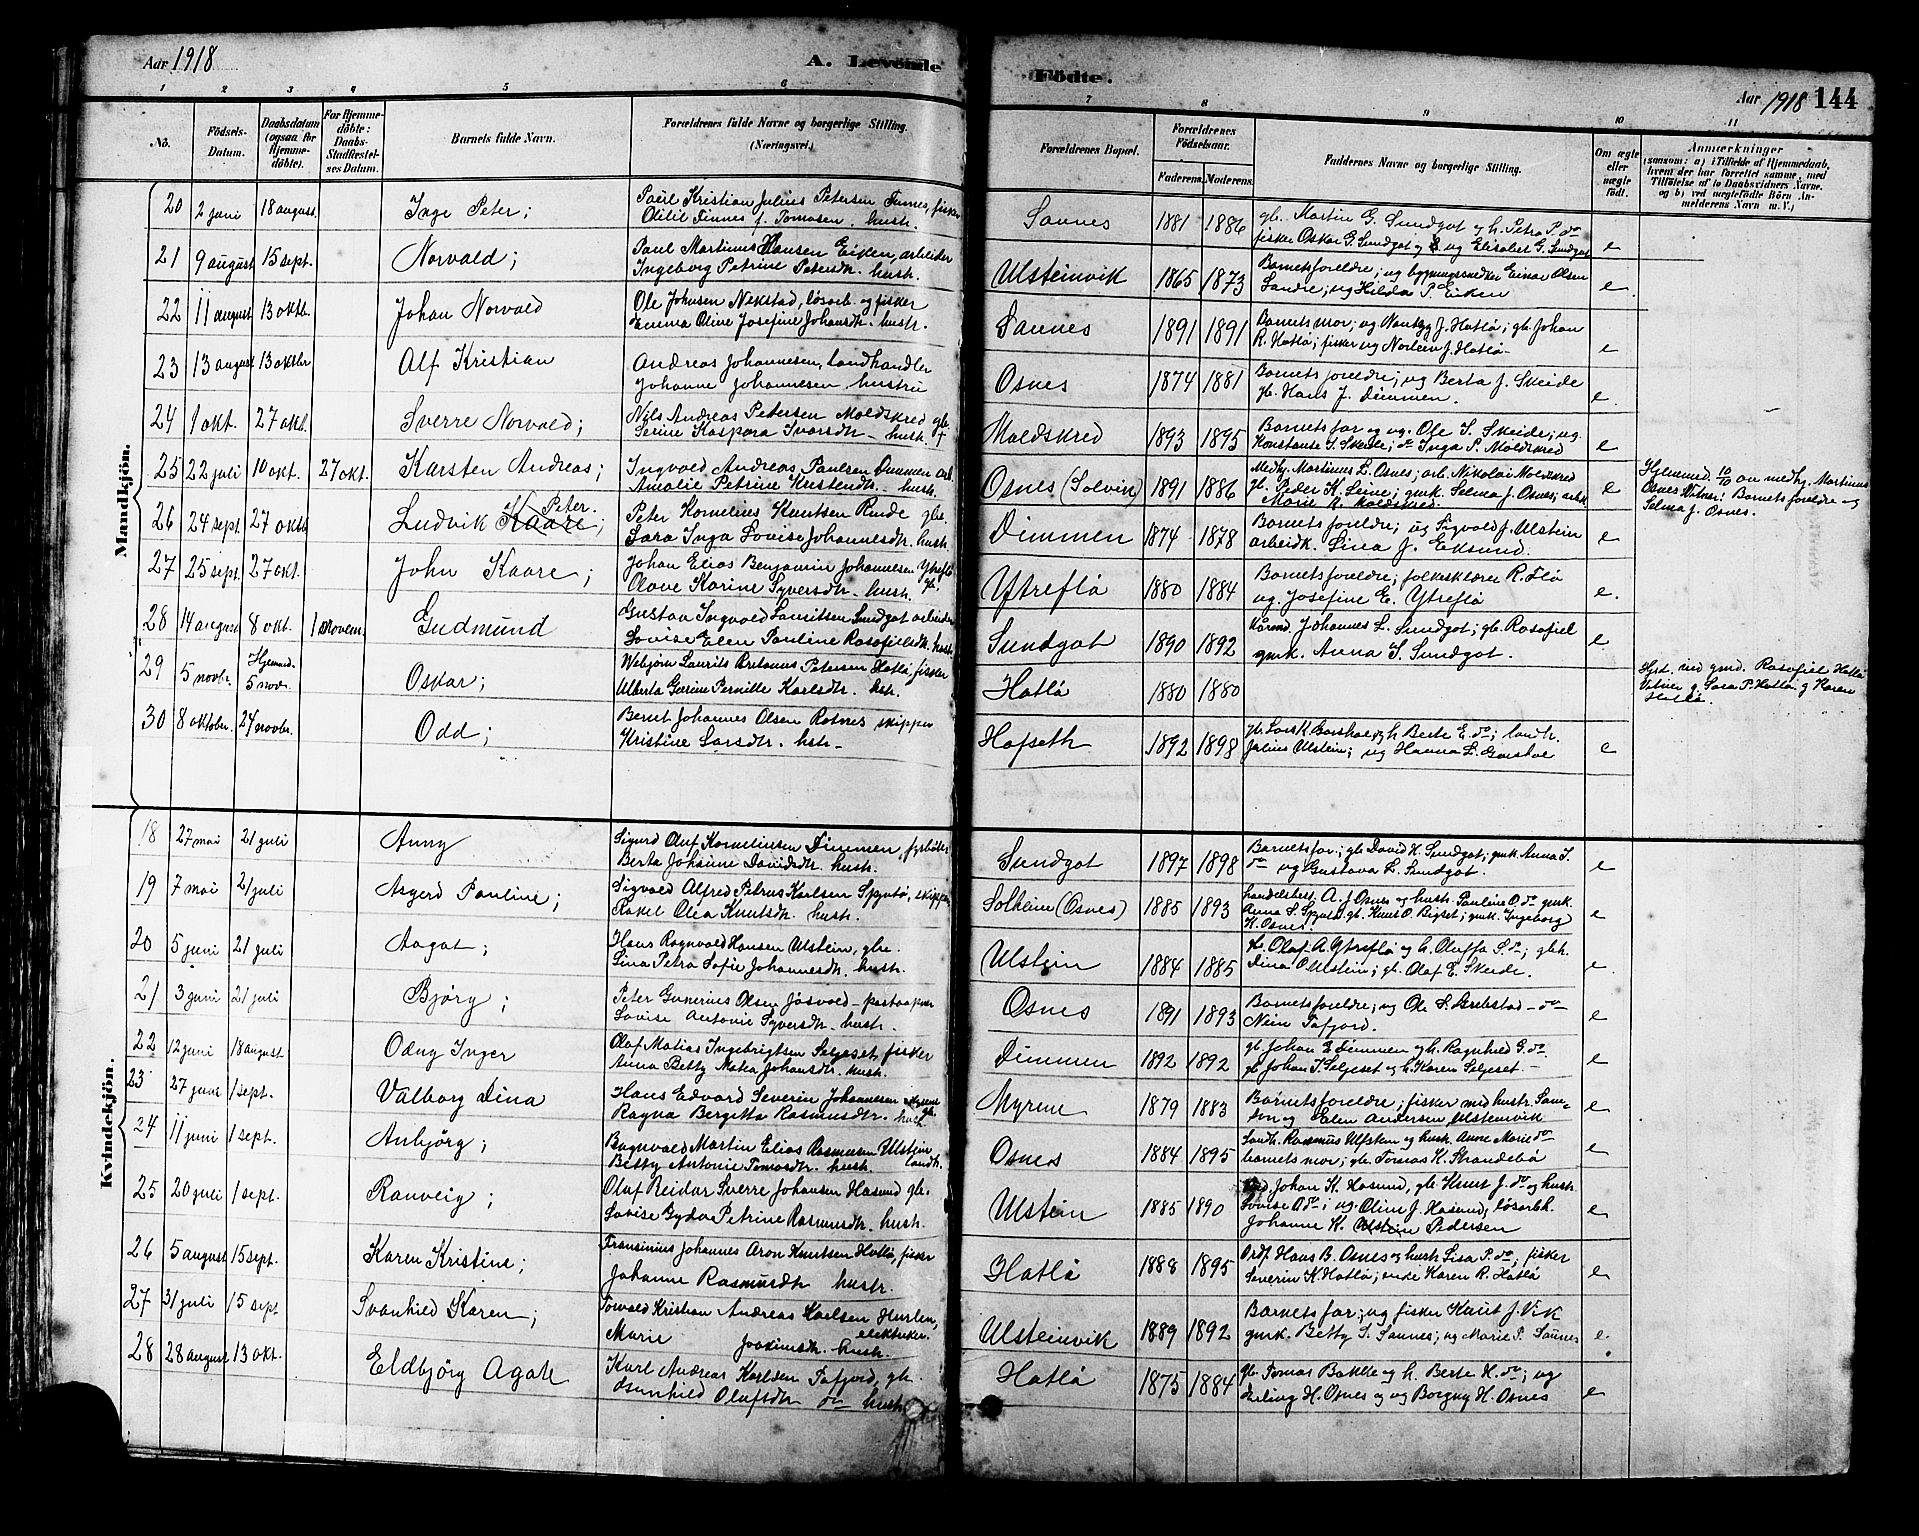 Aar 1918
A. Levende
Födte.
Aar 1918 144
1 2 3 4 5 6 7 8 9 10 11
No.
Födsels-Datum.
Daabsdatum (ogsaa for Hjemmedöbte).
For Hjemmedöbte: Daabs-Stadfæstelses Datum.
Barnets fulde Navn.
Forældrenes fulde Navne og borgerlige Stilling.
(Næringsvei.)
Forældrenes Bopæl.
Forældrenes Födselsaar.
Faderens. Moderens.
Faddernes Navne og borgerlige Stilling.
Om ægte eller uægte födt.
Anmærkninger
(saasom: a) i Tilfælde af Hjemmedaab, hvem der har forrettet samme, med Tilföielse af to Daabsvidners Navne, og b) ved uægtefödte Börn Anmelderens Navn m. V.)
Mandkjön.
20 2 juni 18 august. Inge Peter;
Paul Kristian Julius Petersen Finnes, fisker
Finnes f. Tomasen. hustr.
Saunes 1881 1886
gb. Martin G. Sundgot og h. Petra P. do
fisker Oskar G. Sundgot og ug Elisabet G. Sundgot e
21 9 august 15 sept. Norvald;
Paul Martinus Hansen Eiken, arbeider
Ingeborg Petrine Petersdtr. hustr.
Ulsteinvik 1865 1873
Barnets foreldre; ug bygningssnedker Einar Olsen
Sandre; ug Hilda P. Eiken e.
22 11 august 13 oktbr. Johan Norvald
Ole Johnsen Nekstad, løsarb. og fisker
Emma Oline Josefine Johansdtr. hustr.
Saunes 1891 1891
Barnets mor; ug J. Hatlø; gb. Johan
R. Hatlø; fisker ug J. Hatlø e
23 13 august 13 oktbr Alf Kristian
Andreas Johannesen, Landhandler
Johanne Johannesen hustru
Osnes 1874 1881
Barnets foreldre; ug Berta J. Skeide
gb. Hans J. Dimmen. e.
24 1 okt. 27 okt. Sverre Norvald;
Nils Andreas Petersen Moldskred gbr.
Serine Kaspara Ivarsdtr - hustr. +
Moldskred 1893 1895
Barnets far og ug. Ole S. Skeide; ug.
Konstanse S. Skeide; do Inga P. Moldskred e
25 22 juli 10 okt. 27 okt. Karsten Andreas;
Ingvald Andreas Paulsen Dimmen arb.
Amalie Petrine Kristendtr. - hustr.
Osnes (Solvik) 1891 1886
Medhj. Martinus L. Osnes; arb. Nikolai Moldskred
gb. Peder K. Leine; gmk. Selma J. Osnes; arbk.
Marie R. Moldskred. e
Hjemmed. 10/10 av medhj. Martinus
Osnes Vitner: Barnets foreldre og
Selma J. Osnes.
26 24 sept 27 okt. Ludvik Kaare Peter;
Peter Kornelius Knutsen Runde gbr.
Sara Inga Lovise Johannesdtr. hustr.
Dimmen 1874 1878
Barnets foreldre; ug Sigvald J. Ulstein
arbeidk. Lina J. Eksund. e
27 25 sept. 27 okt. John Kaare;
Johan Elias Benjamin Johannesen Ytreflø gb.
Olave Karine Syversdtr. hustr.
Ytreflø 1880 1884
Barnets foreldre; folkesklærer R. Flø
ug. Josefine E. Ytreflø e.
28 14 august 8 okt. 1 novem. Gudmund
Gustav Ingvald Lauritsen Sundgot arbeider
Lovise Elen Pauline Rasofieldtr. hustr
Sundgot 1890 1892
Kårmd. Johannes L. Sundgot; gb. Rasofiel
gmk. Anna S. Sundgot. e
29 5 novbr. Hjemmed. 5 nov. Oskar;
Webjørn Laurits Petersen Hatlø, fisker
Alberta Gurine Pernille Karlsdtr. hstr.
Hatlø 1880 1880
gmd. Rasofiel Hatlø
Vitner g. Sara P. Hatlø g Karen
Hatlø.
30 8 oktober. 24 novbr. Odd;
Bernt Johannes Olsen Rotnes skipper
Kristine Larsdtr. hstr.
Hofseth 1892 1898
gb. Lars K. og h. Berte E. do; landh.
Julius Ulstein; ug Hanna L. e
Kvindekjön.
18 27 mai 21 juli Anny
Sigurd Oluf Kornelinsen Dimmen, fyrbøter
Berta Johanne Davidsdtr. hustr.
Sundgot 1897 1898
Barnets far; gb. David K. Sundgot; gmk. Anna S.
do og ug Gustava L. Sundgot. e
19 7 mai 21 juli Asgerd Pauline;
Sigvald Alfred Petrus Karlsen skipper
Rakel Olea Knutsdtr. hustr.
Solheim (Osnes) 1885 1893
handelsbest. A. J. Osnes og hustr. Pauline O. do gmk.
Anna S. gb. Knut O. Bigset; gmk. Ingeborg
K. Osnes. e
20 5 juni 21 juli Aagot;
Hans Ragnvald Hansen Ulstein, gbr.
Lina Petra Sofie Johannesdtr. hustr.
Ulstein 1884 1885
gb. Olaf A. Ytreflø og h. Oluffa S. do; gbk.
Dina O. Ulstein; gb. Olaf E. Skeide. e.
21 3 juni 21 juli Bjørg;
Peter Gunerius Olsen Jøsvold - postaapner
Lovise Antonie Syversdtr. hustr.
Osnes 1891 1893
Barnets foreldre; ug Ole S. - do
Tafjord. e
22 12 juni 18 august Odny Inger
Olaf Matias Ingebrigtsen Seljeset fisker
Anna Betty Matea Johansdtr. hustr.
Dimmen 1892 1892
gb. Johan E. Dimmen og h. Ragnhild G. do
gb. Johan S. Seljeset og h. Karen Seljeset. e
23 27 juni 1 sept. Valborg Dina
Hans Edvard Severin Johannesen Myrene gb.
Ragna Bergitta Rasmusdtr. hustr
Myrene 1879 1883
Barnets foreldre; fisker med hustr.
og Elen Andersen Ulsteinvik e
24 11 juni 1 sept. Anbjørg;
Ragnvald Martin Elias Rasmusen Ulstein, landh.
Betty Antonie Tomasdtr. hustr.
Osnes 1884 1895
Landh. Rasmus Ulstein og hustr. Anne Marie do
barnets mor; gb. Tomas K. Strandebø e
25 20 juli 1 sept. Ranveig;
Olaf Reidar Sverre Johansen Hasund gb.
Lovise Gyda Petrine Rasmusdtr. hustr.
Ulstein 1885 1890
Johan K. Hasund, gb. Knut J. do og hustr.
Lovise A. do; ug. Oline J. Hasund, løsarbk.
Johanne K. Ulstein Pedersen e
26 5 august 15 sept. Karen Kristine;
Fransinius Johannes Aron Knutsen Hatlø, fisker
Johanne Rasmusdtr hustr.
Hatlø 1888 1895
Ordf. Hans B. Osnes og hustr. Lisa P. do; fisker
Severin K. Hatlø; enke Karen R. Hatlø e
27 31 juli 15 sept Svanhild Karen;
Torvald Kristian Andreas Karlsen Hurlen, elektriker.
Marie Joakimsdtr. hustr.
Ulsteinvik 1889 1892
Barnets far; ug fisker Knut J. Vik
gmk. Betty S. Saunes; ug Marie P. Saunes e.
28 28 august 13 okt. Eldbjørg Agate
Karl Andreas Karlsen Tafjord, gb.
Olufsdtr do hustr
Hatlø 1875 1884
gb. Tomas Bakke og h. Berte K. do; ug
Erling H. Osnes og ug Borgny H. Osnes e